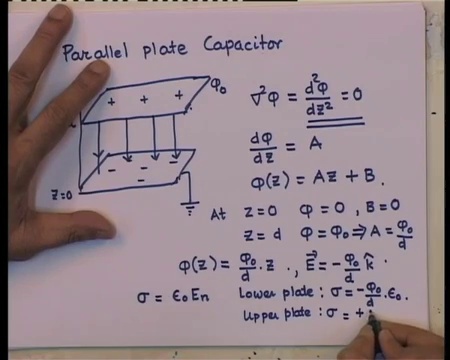 Parallel plate Capacitor
+ + +
φ₀
- - -
-
z=0
∇²φ = d²φ/dz² = 0
dφ/dz = A
φ(z) = Az + B.
At z=0 φ=0, B=0
z=d φ=φ₀ ⇒ A = φ₀/d
φ(z) = φ₀/d . z , E⃗ = - φ₀/d k̂ .
σ = ε₀En Lower plate : σ = - φ₀/d . ε₀.
Upper plate : σ = +